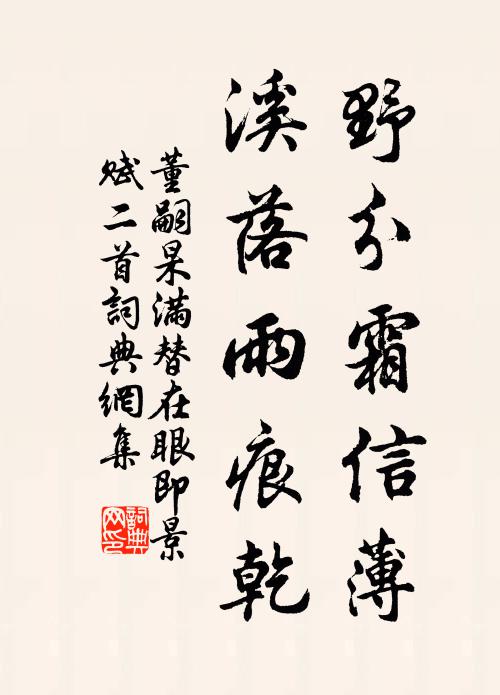 野分霜信薄
溪落雨痕乾
董嗣杲滿替在眼即景
賦二首詞典網集
詞典
网印